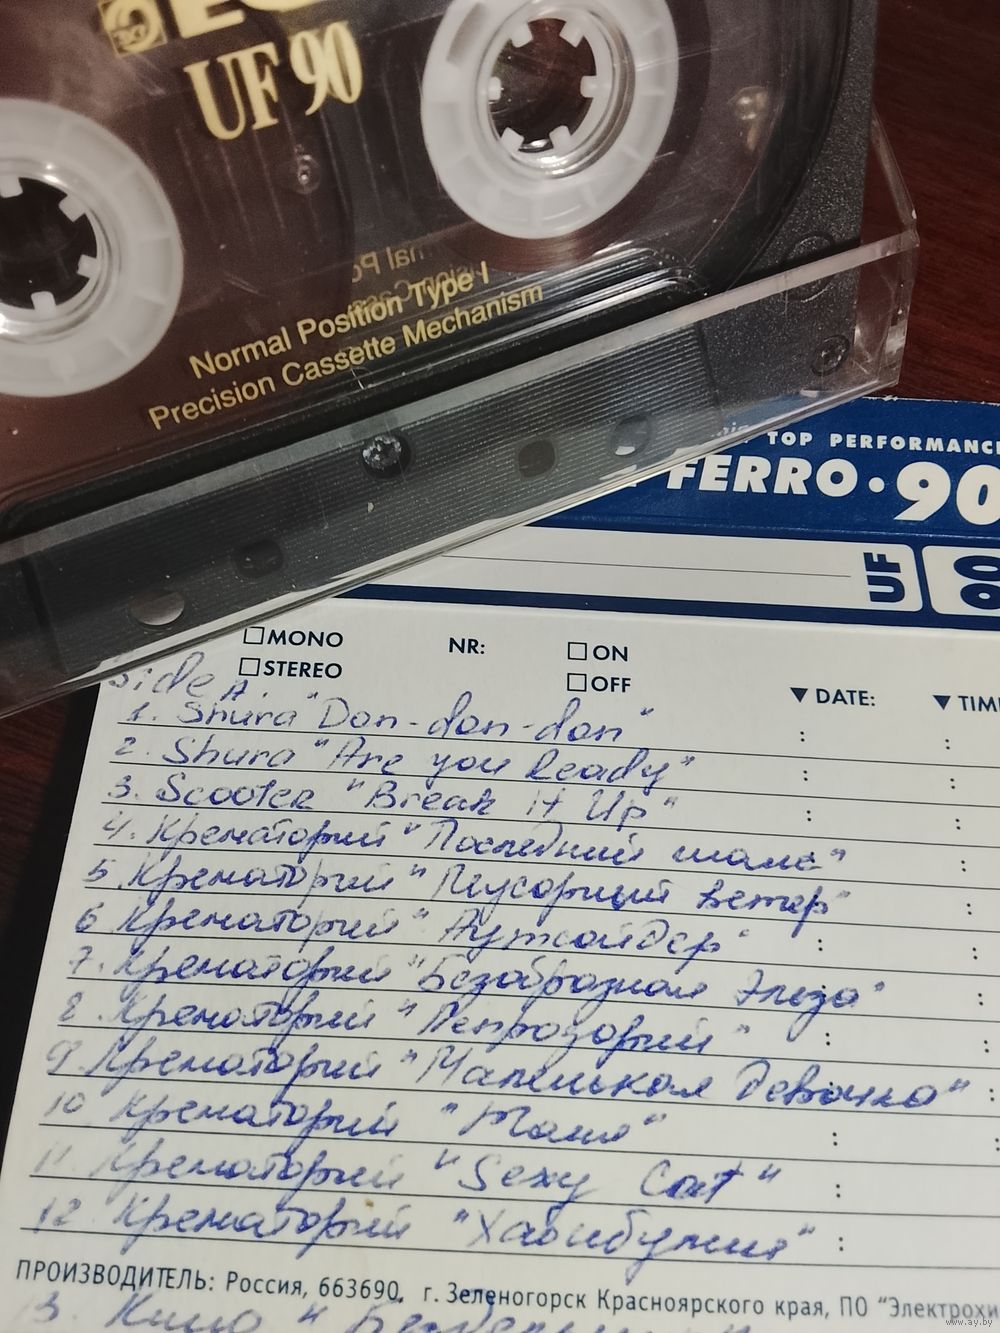 UF 90
Normal Position Type I
Precision Cassette Mechanism
TOP PERFORMANCE
FERRO·90
UF
90
MONO
STEREO
NR:
ON
OFF
▼ DATE:
▼ TIM
Side A.
1. Shura "Don-don-don"
2. Shura "Are you Ready"
3. Scooter "Break It Up"
4. Крематорий "Последний шанс"
5. Крематорий "Мусорный ветер"
6 Крематорий "Аутсайдер"
7. Крематорий "Безобразная Эльза"
8. Крематорий "Лепрозорий"
9. Крематорий "Маленькая девочка"
10 Крематорий "Таня"
11. Крематорий "Sexy Cat"
12 Крематорий "Хабибулин"
ПРОИЗВОДИТЕЛЬ: Россия, 663690, г. Зеленогорск Красноярского края, ПО "Электрохи
13. Кино "
www.ay.by